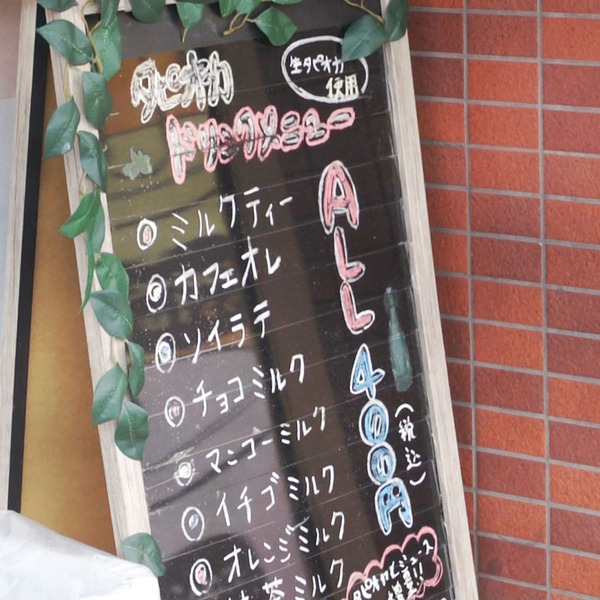 タピオカ
ドリンクメニュー
生タピオカ
使用
ミルクティー
カフェオレ
ソイラテ
チョコミルク
マンゴーミルク
イチゴミルク
オレンジミルク
抹茶ミルク
ALL
400円
(税込)